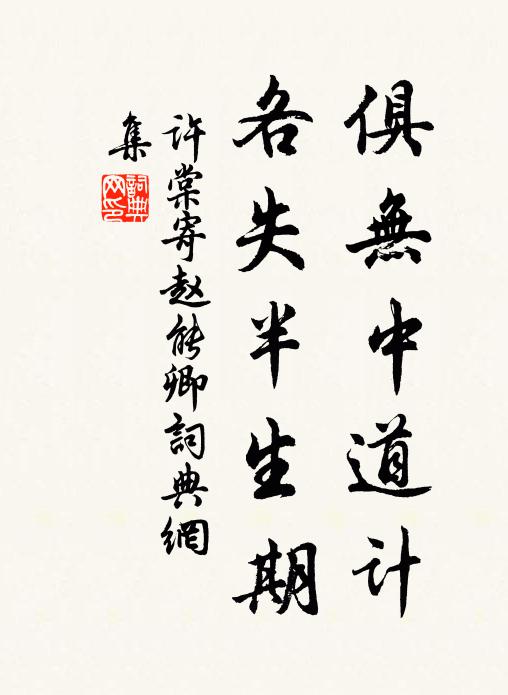 俱無中道计
各失半生期
许棠寄赵能卿詞典網
集
詞典网印